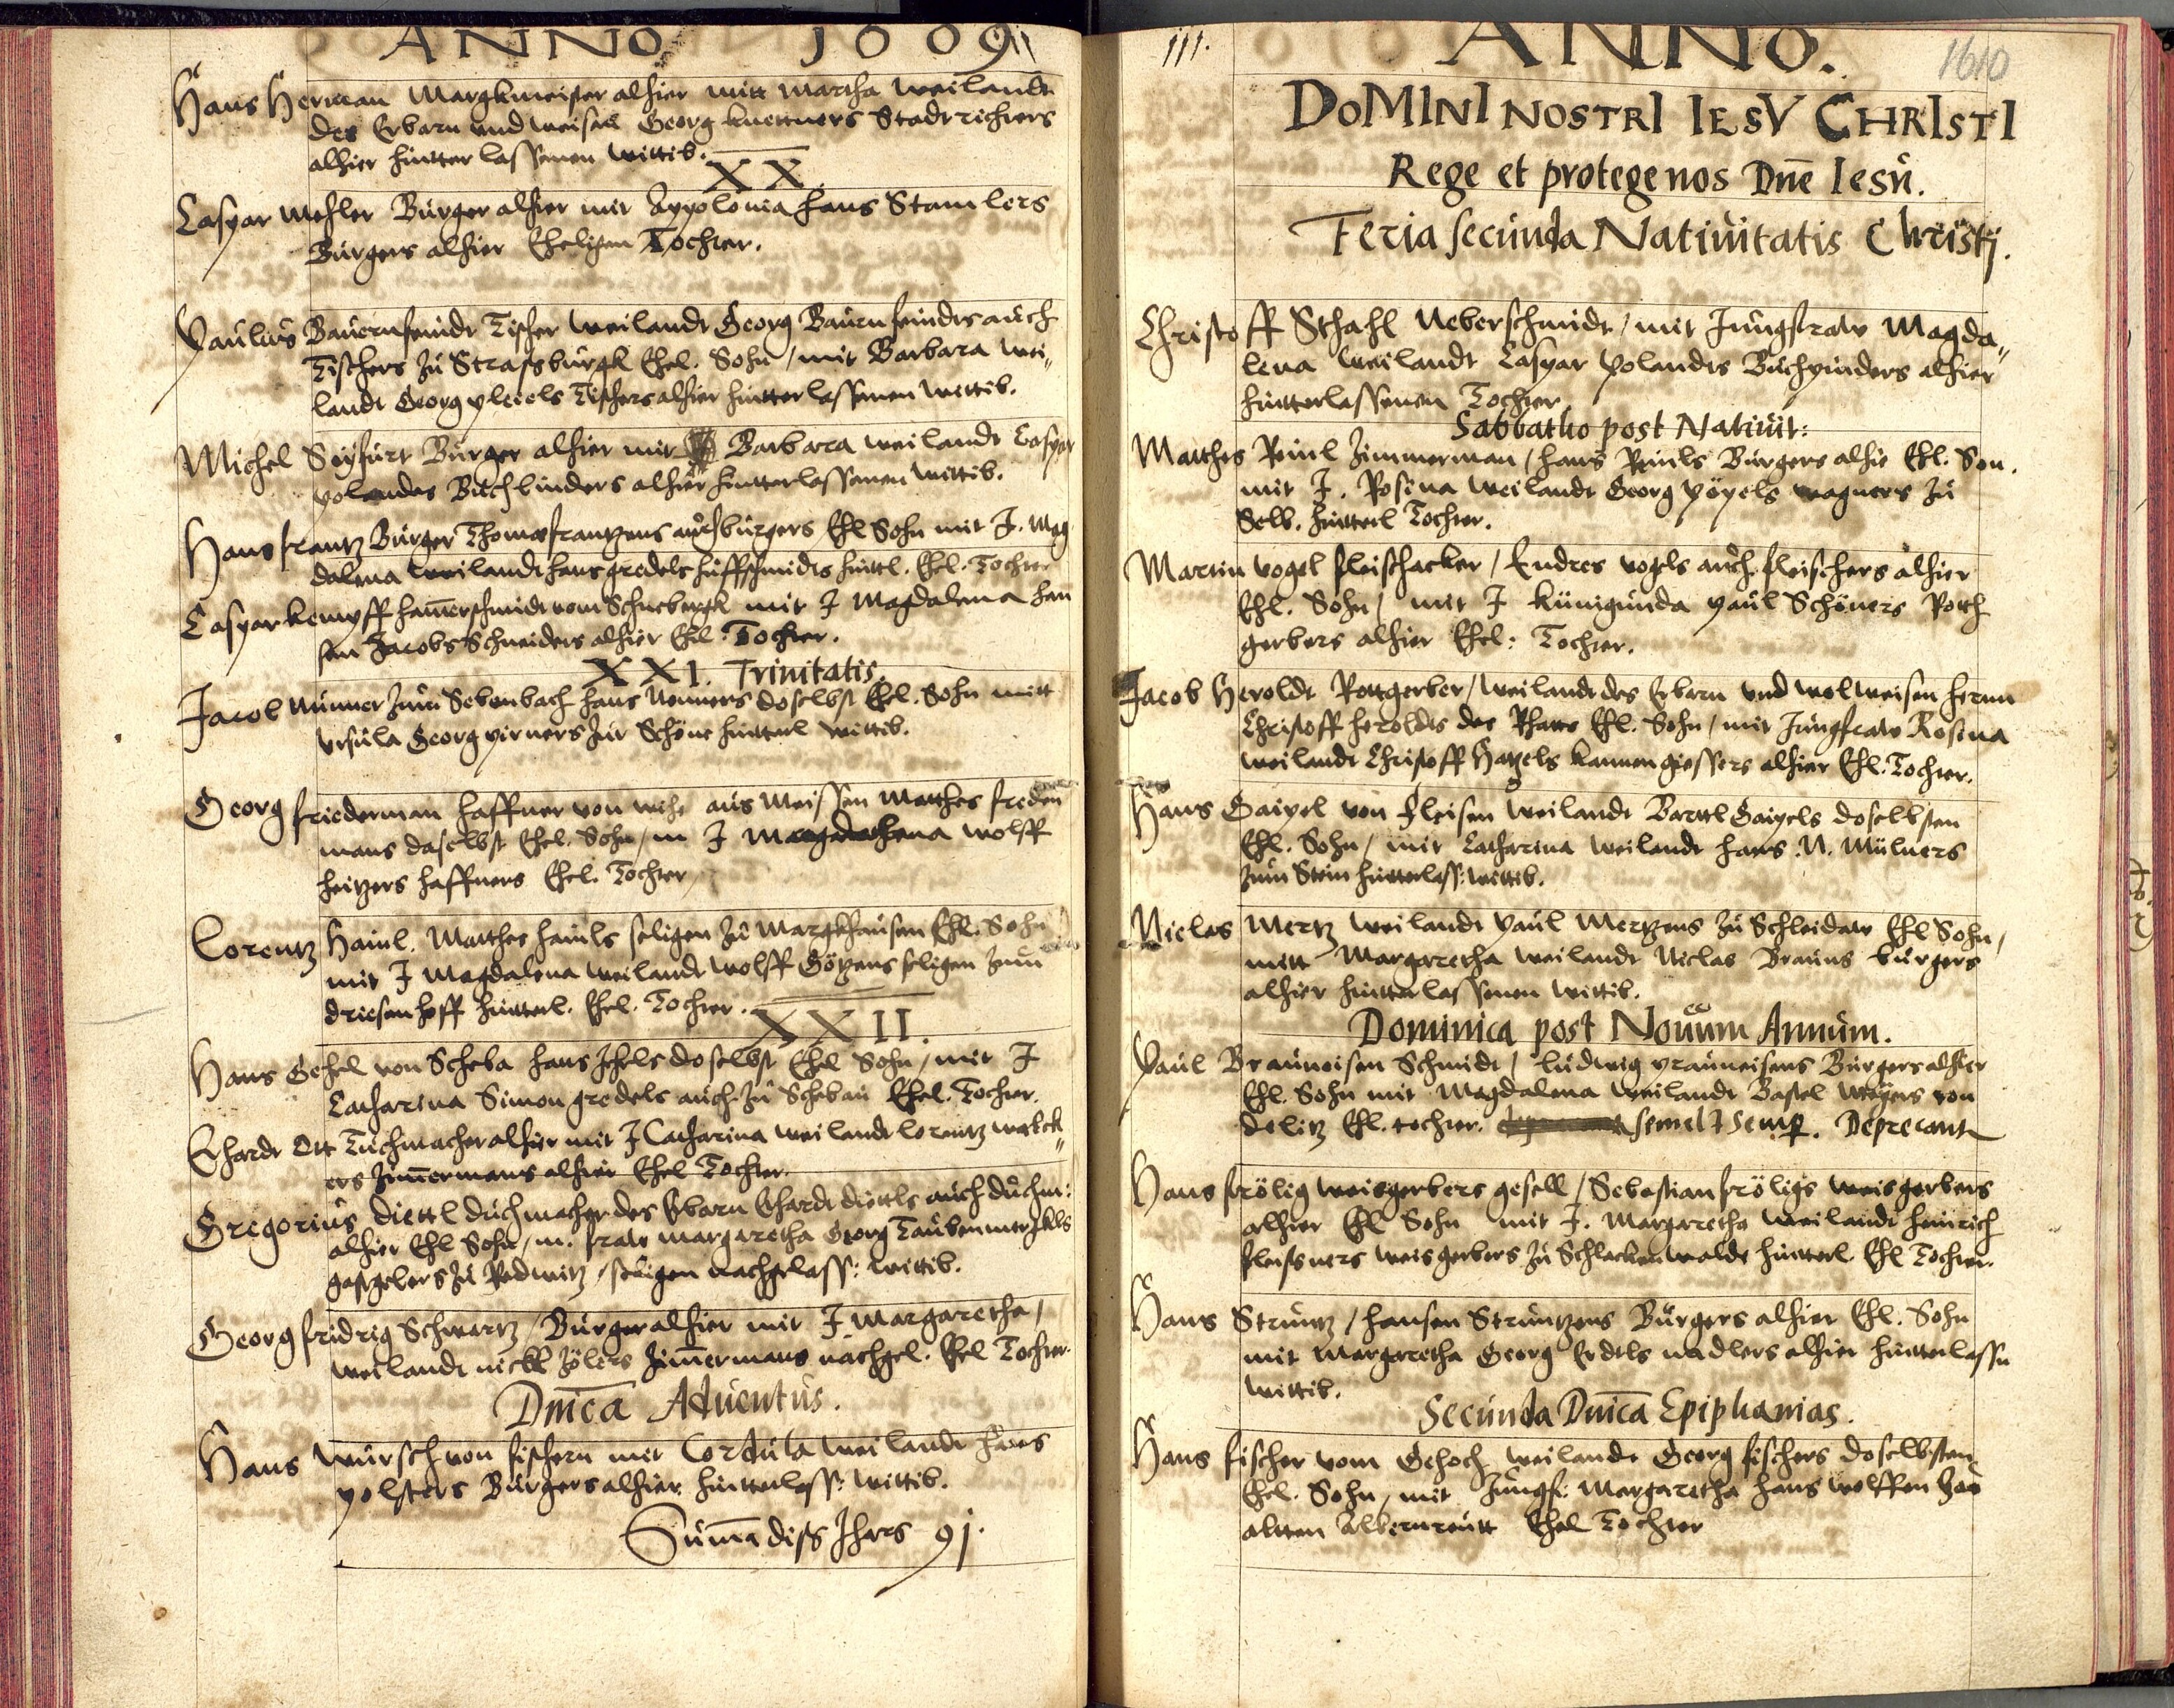 ANNO 1609
Hans Herman Margkmeister alhier mitt Martha weilandt
des Erbarn und weisen Georg kuettners Stadtrichters
alhier hintterlassenen wittib.
XX.
Caspar Mesler Bürger alhier mit Appolonia Hans Stamlers
Bürgers alhier Eheligen Tochter.
Paulus Bauernfeindt Tischer weilandt Georg Baurnfeindts auch
Tischers zu Strassburgk Ehel. Sohn / mit Barbara wei„
landt Georg Tischers alhier hintterlassenen wittib.
Michel Seyfurt Bürger alhier mit Barbara weilandt Caspar
polandes Buchbinders alhier hintterlassenen wittib.
Hans frantz Bürger Thoma frantzens auch bürgers Ehl Sohn mit J. Mag
dalena weilandt hans gredels huffschmidts hintl. Ehel. Tochter
Caspar kempff hamerschmidt vom Schnebergk mit J Magdalena han
sen Jacobs Schneiders alhier Ehl. Tochter.
XXI. Trinitatis.
Jacob Nunner zum Sebenbach hans Nonners doselbst Ehel. Sohn mitt
Ursula Georg pirners zur Schöne hintterl wittib.
Georg friederman haffner von aus Meissen Matthes freden
mans daselbst Ehel. Sohn / m J Magdalena wolff
heitzers haffners Ehel. Tochter
Lorentz Hainl. Matthes hainls seligen zu Margkhausen Ehl. Sohn
mit J Magdalena weilandt wolff Götzens seligen zum
driesenhoff hintterl. Ehel. Tochter.
XXII.
Hans Gehel von Scheba hans Ihels doselbst Ehel Sohn / mit J
Catharina Simon gredels auch zu Scheban Ehel. Tochter.
Erhardt Ott Tuchmacher alhier mit J Catharina weilandt lorentz walck„
ers zimermans alhier Ehel Tochter.
Gregorius diettl duchmacher des Erbarn Erhardt diettls auch duchm:
alhier Ehl Sohn / m. fraw margaretha Georg Taubenmergkls
gastgebers zu Redwitz / seligen nachgelass: wittib.
Georg fridrig Schwartz / Bürger alhier mit J Margaretha /
weilandt nickl zölers Zimermans nachgel. Ehel Tochter
Dnica Aduentus.
Hans würsch von fischern mit Cordula weilandt hans
polsters Bürgers alhier hintterlass: wittib.
Suma diss Jhars 91.
111.
ANNO.
1610
DOMINI NOSTRI IESV CHRISTI
Rege et protege nos Dne Iesu.
Feria secunda Natiuitatis Christj.
Christoff Stahl Neberschmidt / mit Jungfraw Magda„
lena weilandt Caspar Polandts Buchpinders alhier
hintterlassenen Tochter
Sabbatho post Natiuit:
Matthes Reinl Zimmerman / hans Reinls Bürgers alhie Ehl. Son.
mit J. Rosina weilandt Georg Pöpels wagners zu
Selb. hintterl Tochter.
Martin vogel fleischacker / Endres vogels auch fleischers alhier
Ehl. Sohn / mit J Kunigunda paul Schöners Roth
gerbers alhier Ehel: Tochter.
Jacob Heroldt Rottgerber / weilandt des Erbarn und wolweisen herrn
Christoff heroldts des Rhatts Ehl. Sohn / mit Jungfraw Rosina
weilandt Christoff Hatzels kannengiessers alhier Ehl. Tochter.
Hans Gaipel von fleisen weilandt Barttl Gaipels doselbsten
Ehl. Sohn / mit Catharina weilandt hans. N. Mülners
zum Stein hintterlass: wittib.
Niclas Mertz weilandt Paul Mertzens zu Schleidaw Ehl Sohn /
mitt Margaretha weilandt Niclas Brauns bürgers
alhier hintterlassenen wittib.
Dominica post Nouum Annum.
Paul Brauneisen Schmidt / ludwig prauneisens Bürgers alhier
Ehl. Sohn mit Magdalena weilandt Bastel Mayers von
dolitz Ehl. tochter. semel Semp. Deprecant
Hans frölig weisgerbers gesell / Sebastian fröligs weisgerbers
alhier Ehl Sohn mit J. Margaretha weilandt heinrich
fleisners weisgerbers zu Schlackenwalde hintterl Ehl Tochter.
Hans Struntz / hansen Struntzens Bürgers alhier Ehl. Sohn
mit Margaretha Georg Erdtls nadlers alhier hintterlassn
wittib.
Secunda Dnica Epiphanias.
Hans fischer vom Gehoch weilandt Georg fischers doselbsten
Ehel. Sohn / mit Jungf: Margaretha hans wolffen
altten Albernreutt Ehel Tochter